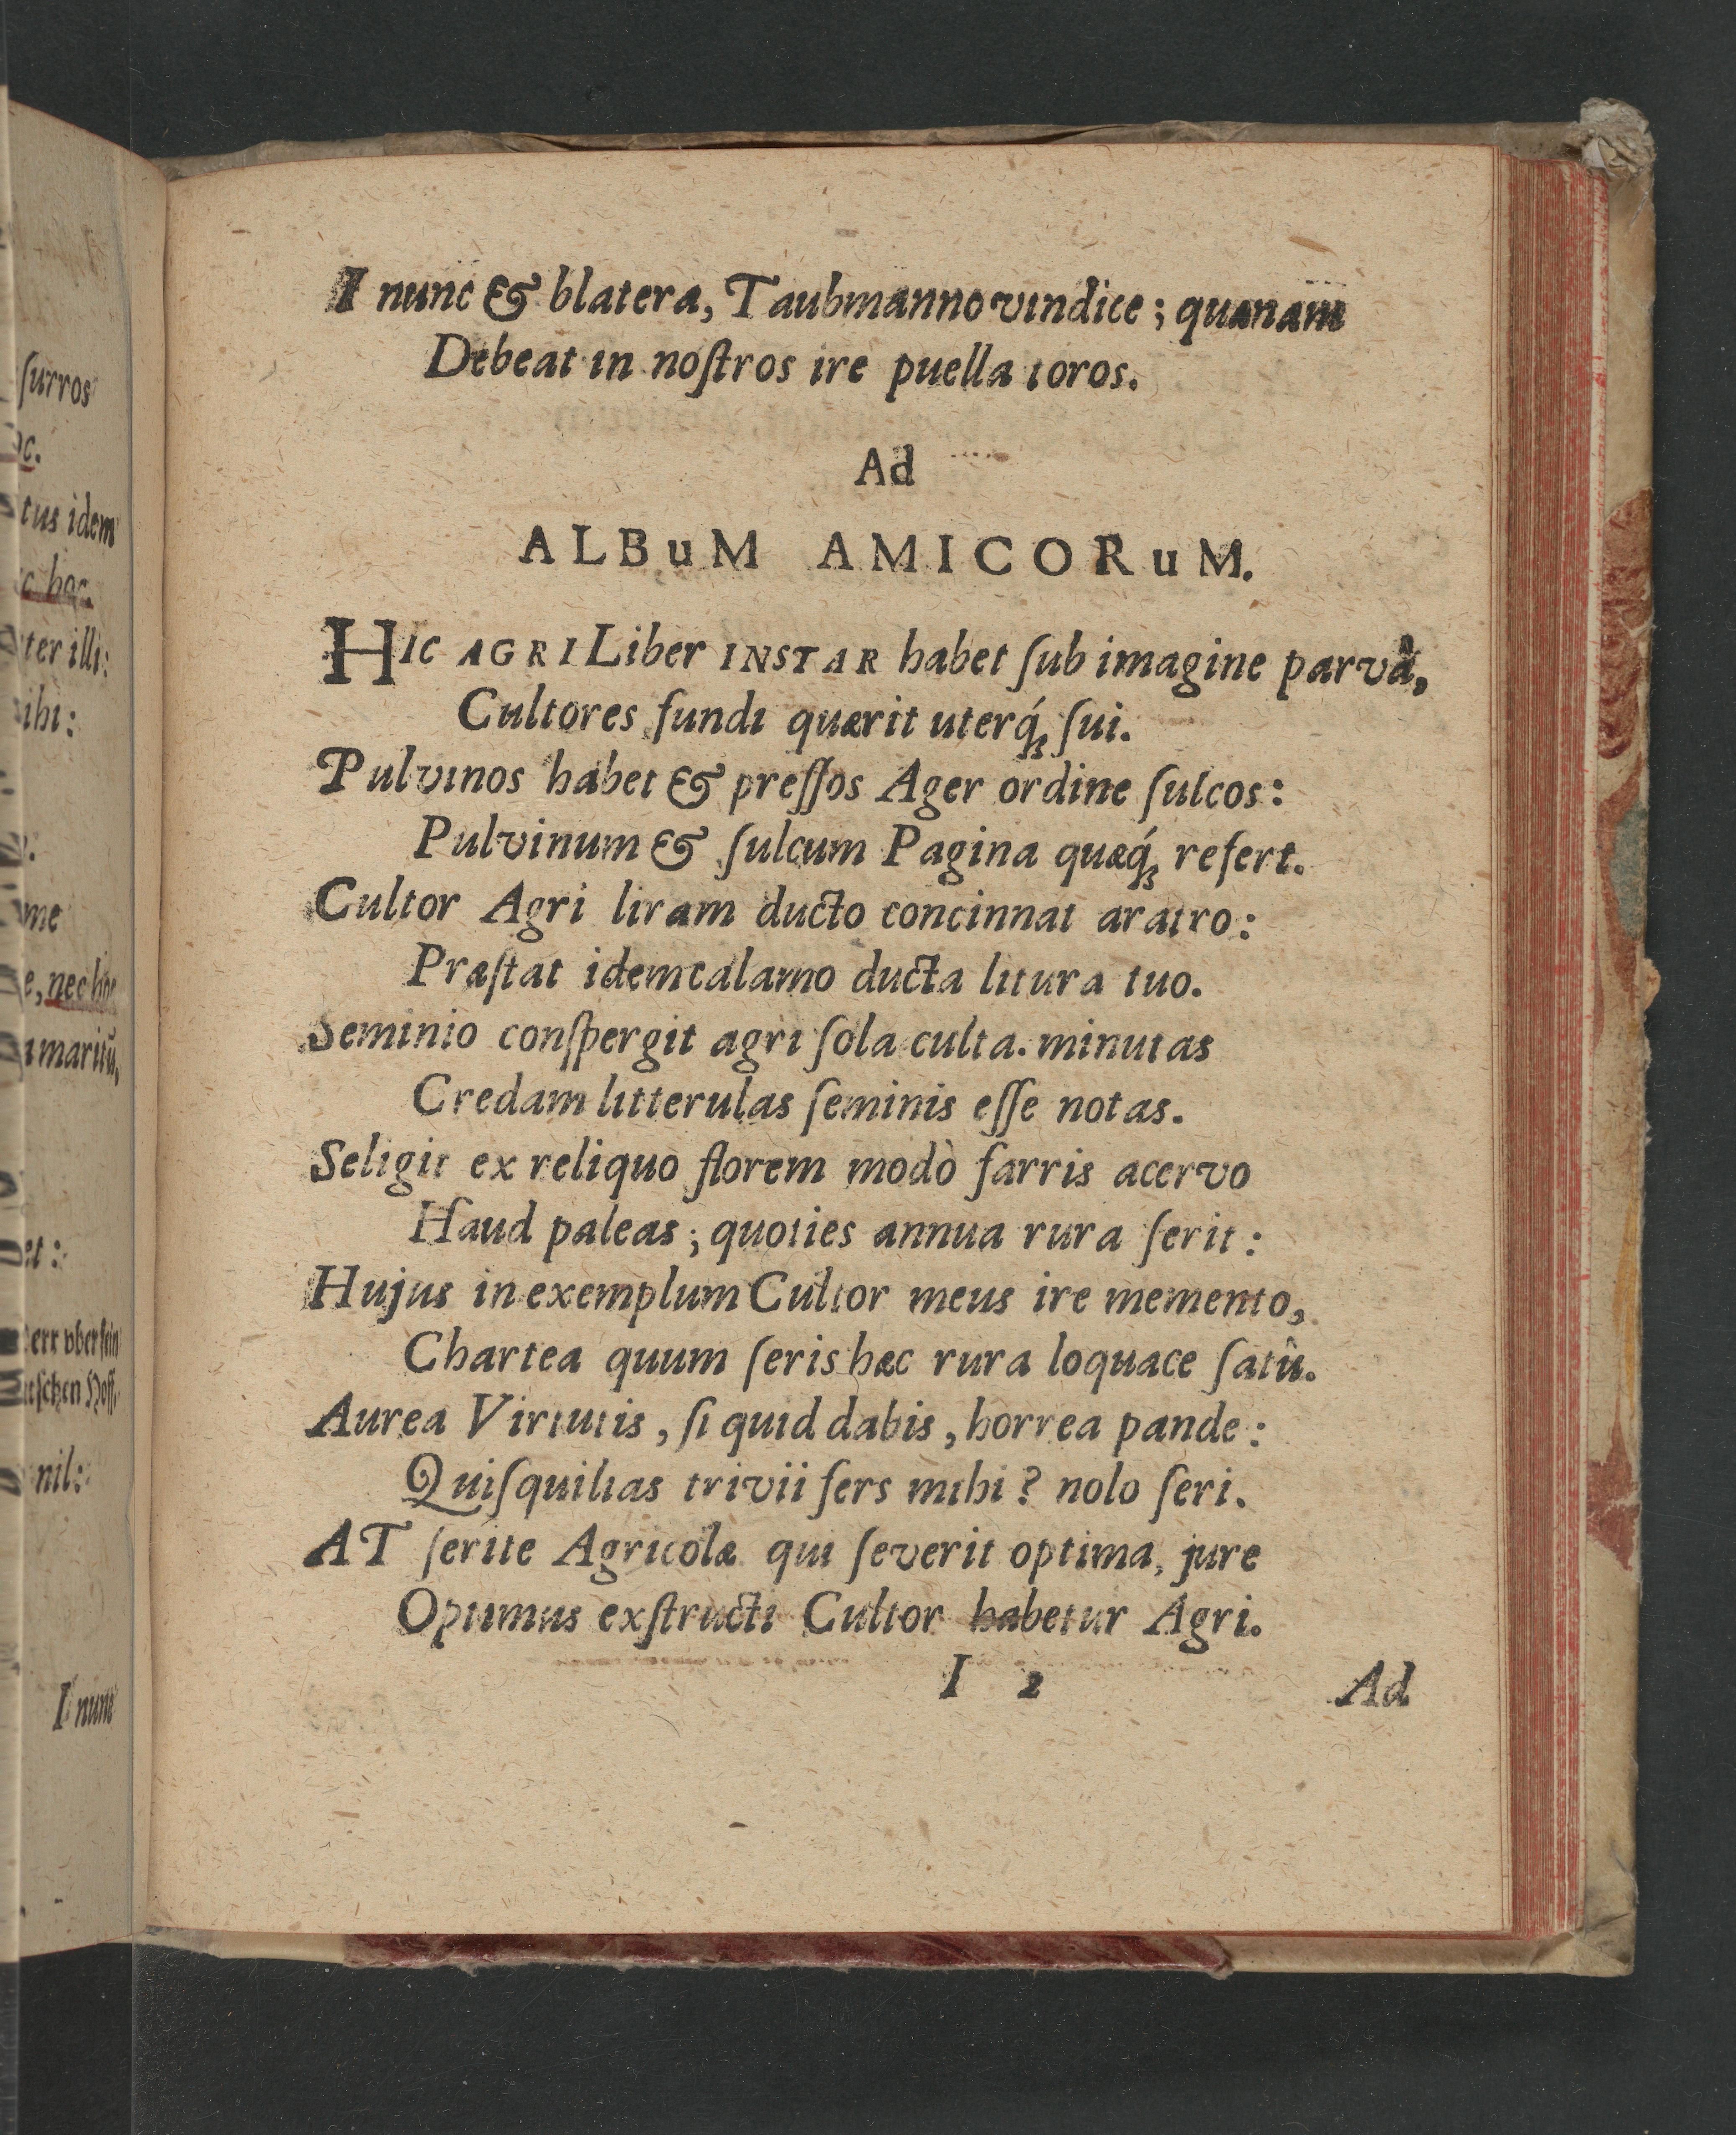 ſurros
oc.
tus idem
c hoc.
ter illi:
ihi:
me
e, nec hoc
imaritũ,
et:
nil:
I nunc
I nunc & blatera, Taubmanno vindice; quanam
Debeat in noſtros ire puella toros.
Ad
ALBuM AMICORuM.
HIC AGRI Liber INSTAR habet ſub imagine parvâ,
Cultores fundi quærit uterq́; ſui.
Pulvinos habet & preſſos Ager ordine ſulcos:
Pulvinum & ſulcum Pagina quæq́; refert.
Cultor Agri liram ducto concinnat aratro:
Præſtat idem calamo ducta litura tuo.
Seminio conſpergit agri ſola culta. minutas
Credam litterulas ſeminis eſſe notas.
Seligit ex reliquo florem modò farris acervo
Haud paleas; quoties annua rura ſerit:
Hujus in exemplum Cultor meus ire memento,
Chartea quum ſeris hæc rura loquace ſatû.
Aurea Virtutis, ſi quid dabis, horrea pande:
Quiſquilias trivii fers mihi? nolo ſeri.
AT ſerite Agricolæ qui ſeverit optima, jure
Optimus exſtructi Cultor habetur Agri.
I 2
Ad